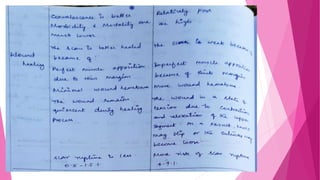 Convalescence is better
Morbidity & Mortality are
much lower
Relatively poor
are high
Wound
healing
The scar is better healed
because of:
Perfect muscle apposition
due to thin margin
Minimal wound hematoma
The wound remain
quiescent during healing
process
The scar is weak because
Imperfect muscle apposition
because of thick margin
More wound hematoma
The wound in a state of
tension due to contraction
and relaxation of the upper
segment. As a result, knots
may slip or the sutures may
become loose.
Scar rupture is less
0.5-1.5%
More risk of scar rupture
4-9%